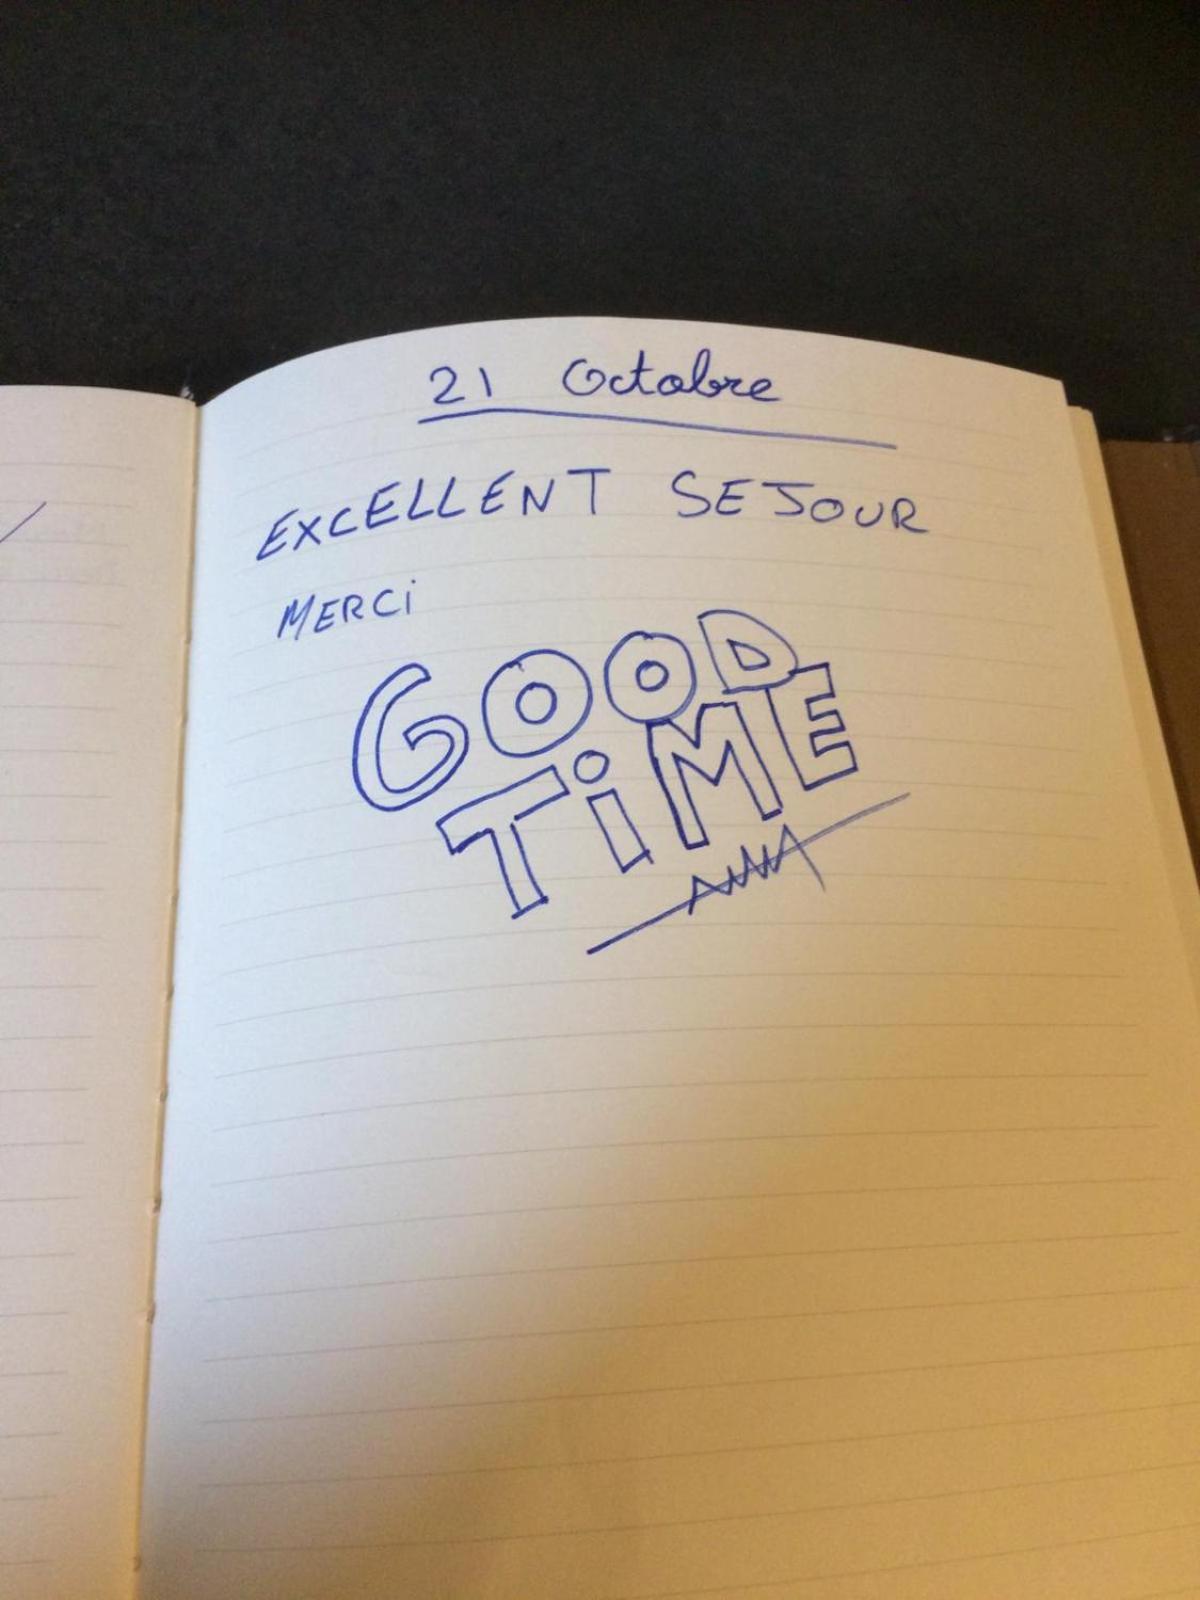 21 Octobre
EXCELLENT SEJOUR
MERCi
GOOD
TiME